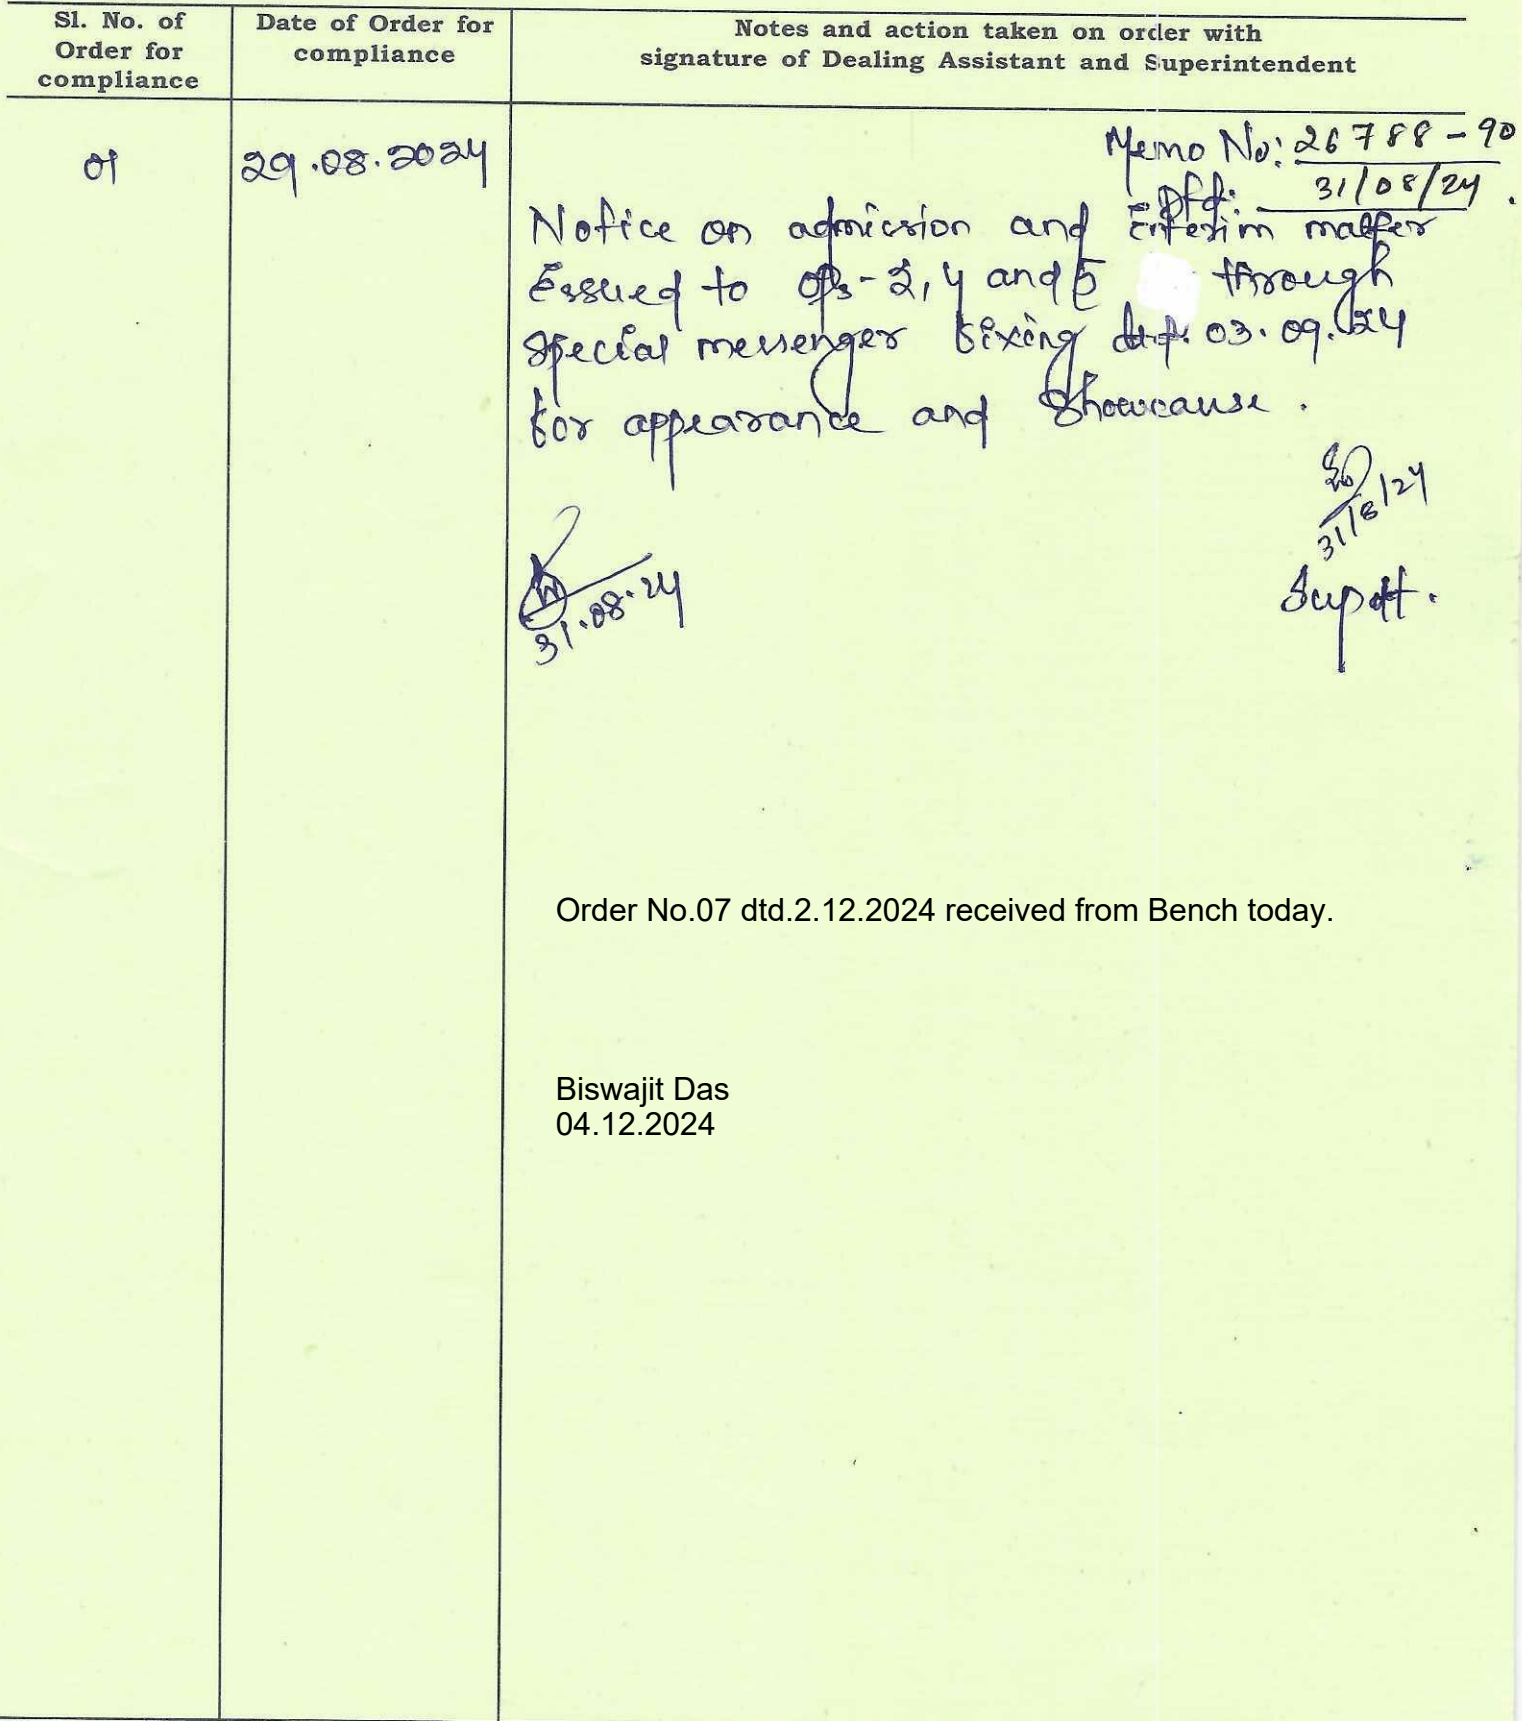 Sl. No. of
Order for
compliance
Date of Order for
compliance
Notes and action taken on order with
signature of Dealing Assistant and Superintendent
01
29.08.2024
Memo No: 26788-90
Dtd: 31/08/24.
Notice on admission and Interim matter
Issued to OPs-2,4 and 5 through
special messenger fixing dt. 03.09.24
for appearance and Showcause.
31/8/24
Supdt.
31.08.24
Order No.07 dtd.2.12.2024 received from Bench today.
Biswajit Das
04.12.2024